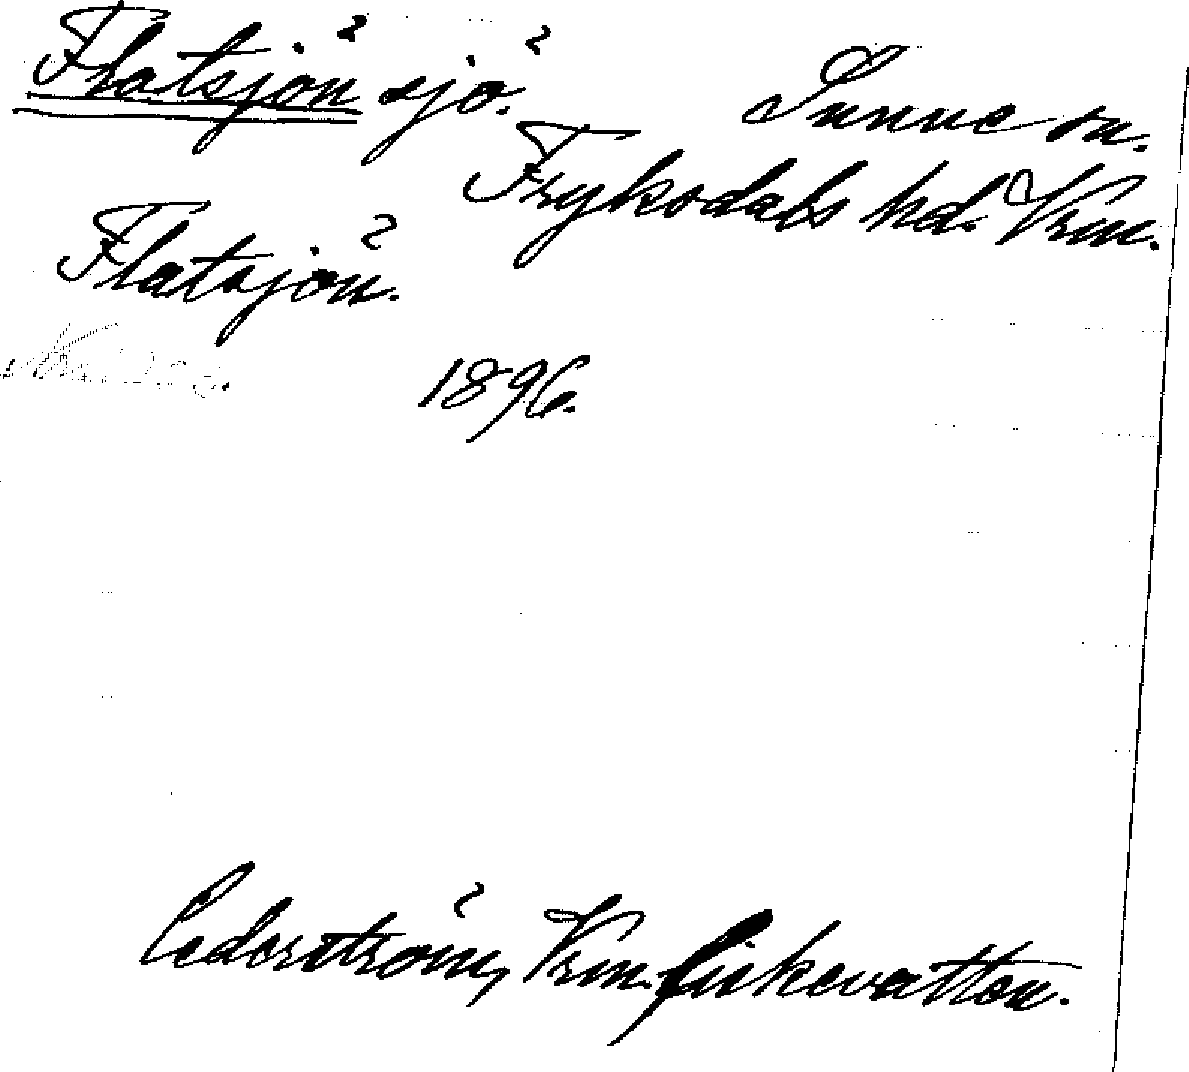 Flatsjön sjö. Sunne sn.
Fryksdals hd. Vrm.
Flatsjön.
1896.
Cederström, Vrm. fiskevatten.